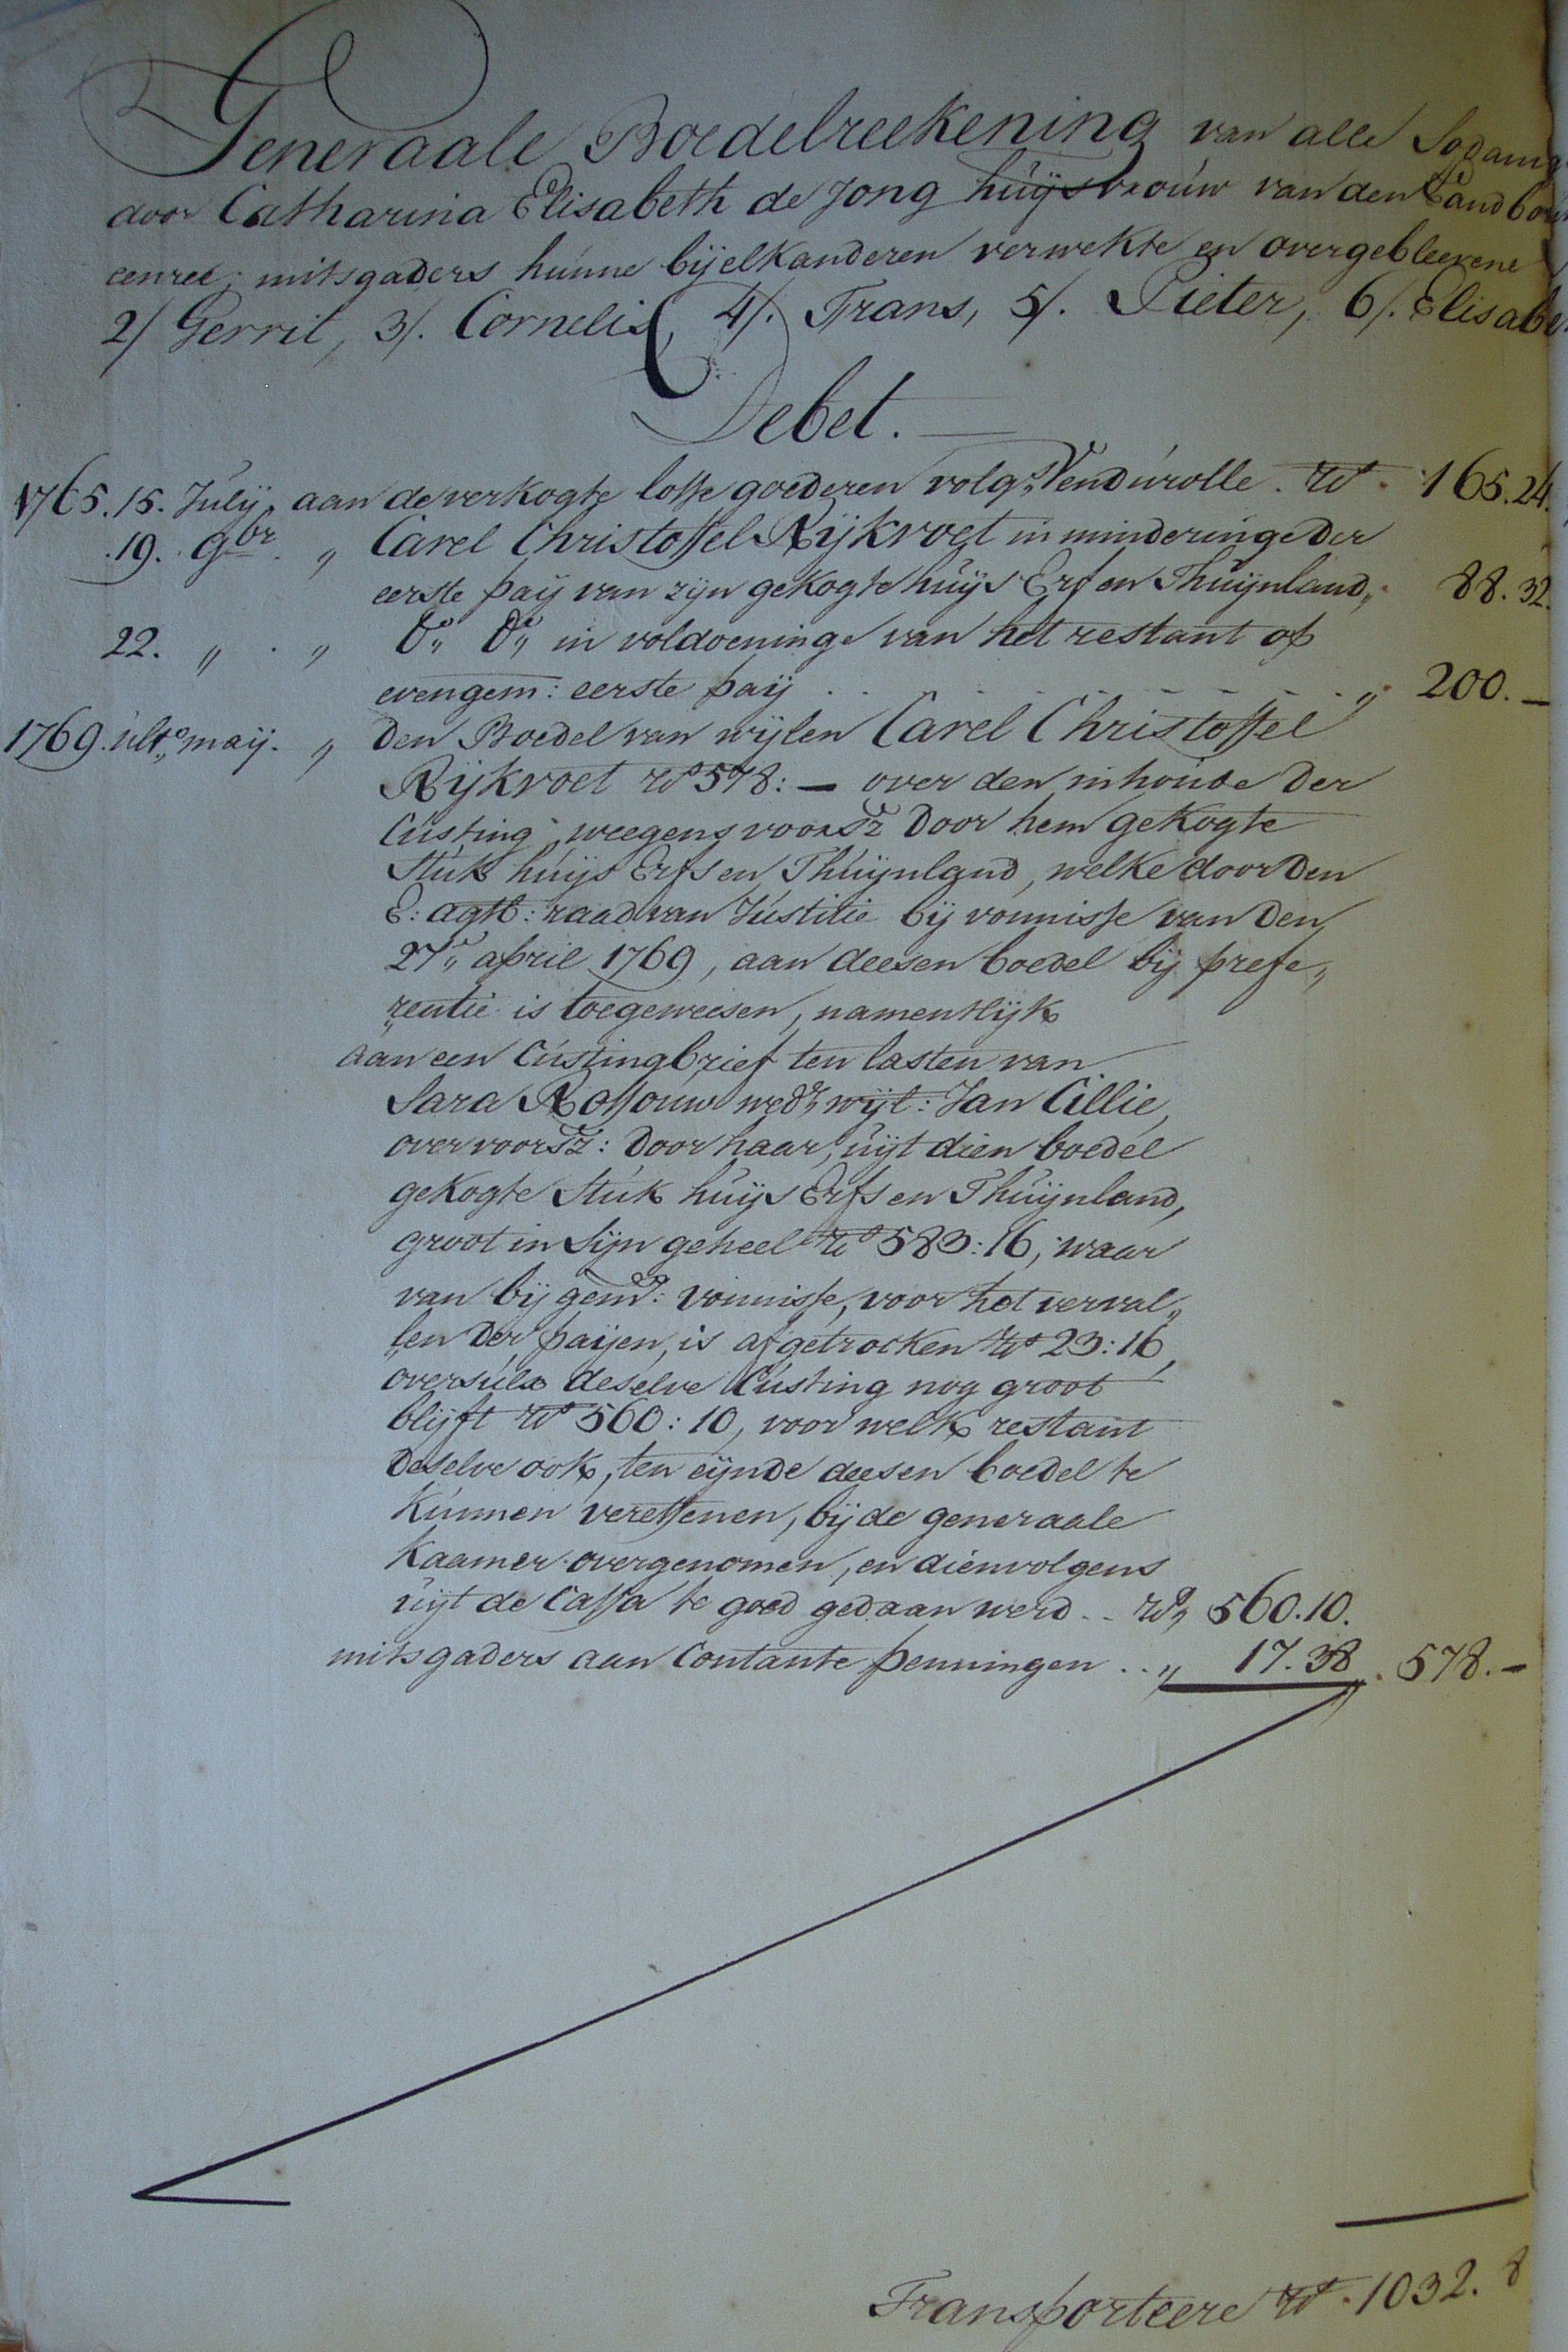 Generaale Boedelreekening van alle Sodanig
door Catharina Elisabeth de Jong huijsvrouw van den Landbou
eenree; mitsgaders hunne bij elkanderen verwekte en overgebleevene
2/ Gerrit, 3/. Cornelis, 4/. Frans, 5/. Pieter, 6/. Elisabe
Debet.
1765. 15. Julij. aan de verkogte losse goederen volgs„ Vendurolle. Rd. 165.24.
19. 9br. „ Carel Christoffel Rijkvoet in minderinge der
eerste paij van zijn gekogte huijs Erf en Thuijnland„ 88.32.
22. „ . „ do„ do„ in voldoeninge van het restant op
evengem: eerste paij . . . . . . . „ 200.—
1769. ulto„ maij. „ den Boedel van wijlen Carel Christoffel
Rijkvoet Rd 578:— over den inhoude der
Custing weegens voorsz door hem gekogte
Stuk huijs Erfs en Thuijnland, welke door den
E: agtb: raad van Justitie bij vonnisse van den
27e„ april 1769, aan deesen boedel bij prefe„
„rentie is toegeweesen, namentlijk
aan een Custingbrief ten lasten van
Sara Rossouw wede„ wijl: Jan Cillie,
over voorsz: door haar, uijt dien boedel
gekogte Stuk huijs Erfs en Thuijnland,
groot in Sijn geheel Rd 583:16, waar
van bij gemd: vonnisse, voor het verval„
„len der paijen, is afgetrocken Rd 23:16,
oversulx deselve Custing nog groot
blijft Rd 560:10, voor welk restant
deselve ook, ten eijnde deesen boedel te
kunnen vereffenen, bij de generaale
kaamer overgenomen, en dienvolgens
uijt de Cassa te goed gedaan werd.. Rd„ 560.10.
mitsgaders aan Contante penningen .. „ 17.38 . 578.—
Transporteere Rd. 1032. 8